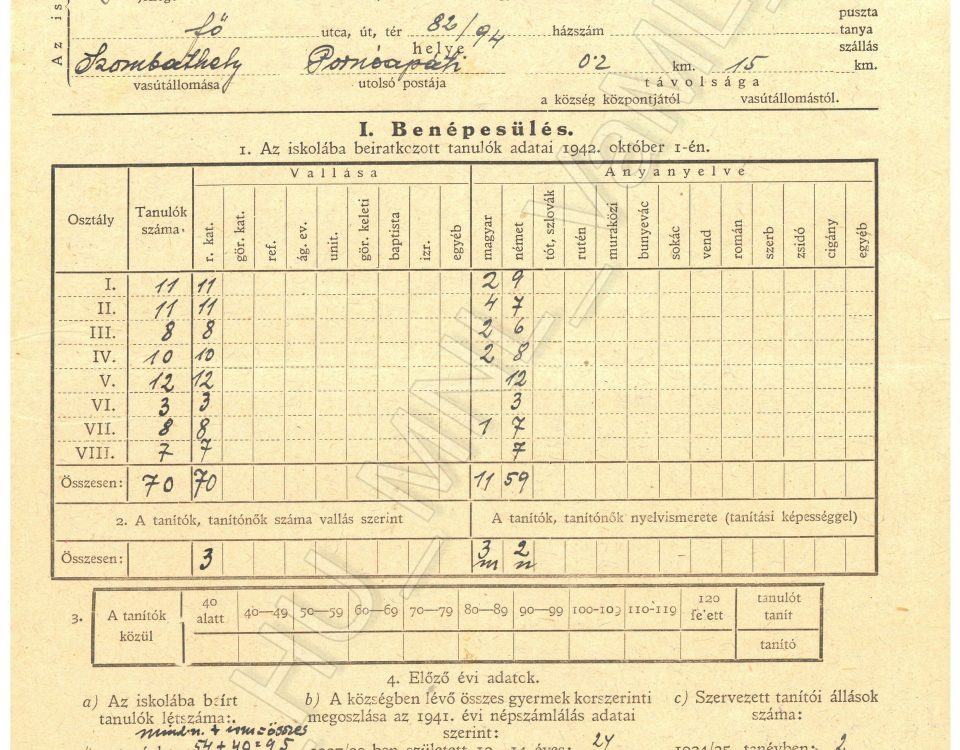 Az is
puszta
fő utca, út, tér 82/94 házszám tanya
helye szállás
Szombathely Pornóapáti 0.2 km. 15 km.
vasútállomása utolsó postája távolsága
a község központjától vasútállomástól.
I. Benépesülés.
1. Az iskolába beiratkozott tanulók adatai 1942. október 1-én.
Osztály Tanulók száma Vallása Anyanyelve
r. kat. gör. kat. ref. ág. ev. unit. gör. keleti baptista izr. egyéb magyar német tót, szlovák rutén muraközi bunyevác sokác vend román szerb zsidó cigány egyéb
I. 11 11 2 9
II. 11 11 4 7
III. 8 8 2 6
IV. 10 10 2 8
V. 12 12 12
VI. 3 3 3
VII. 8 8 1 7
VIII. 7 7 7
Összesen: 70 70 11 59
2. A tanítók, tanítónők száma vallás szerint A tanítók, tanítónők nyelvismerete (tanítási képességgel)
Összesen: 3 3 2
m n
3. A tanítók közül 40 alatt 40—49 50—59 60—69 70—79 80—89 90—99 100-109 110-119 120 felett tanulót tanít
tanító
4. Előző évi adatok.
a) Az iskolába beírt b) A községben lévő összes gyermek korszerinti c) Szervezett tanítói állások
tanulók létszáma: megoszlása az 1941. évi népszámlálás adatai száma:
mindn. + ism = összes szerint:
54 + 40 = 95 24 2
HU_MNL_VaML